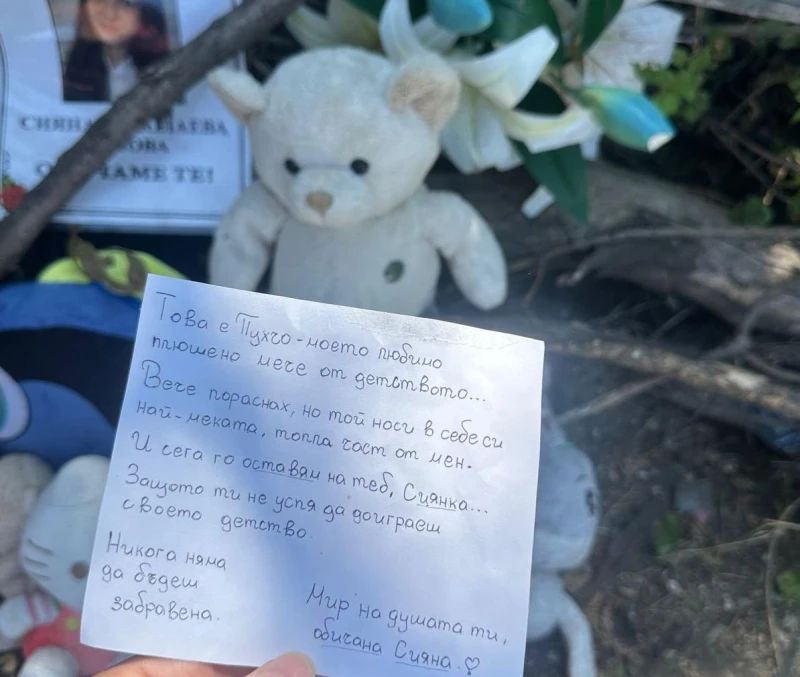 ТЕ!
Това е Пухчо - моето любимо
плюшено мече от детството...
Вече пораснах, но той носи в себе си
най-меката, топла част от мен.
И сега го оставям на теб, Сиянка...
Защото ти не успя да доиграеш
своето детство.
Никога няма
да бъдеш
забравена.
Мир на душата ти,
обичана Сияна.♡